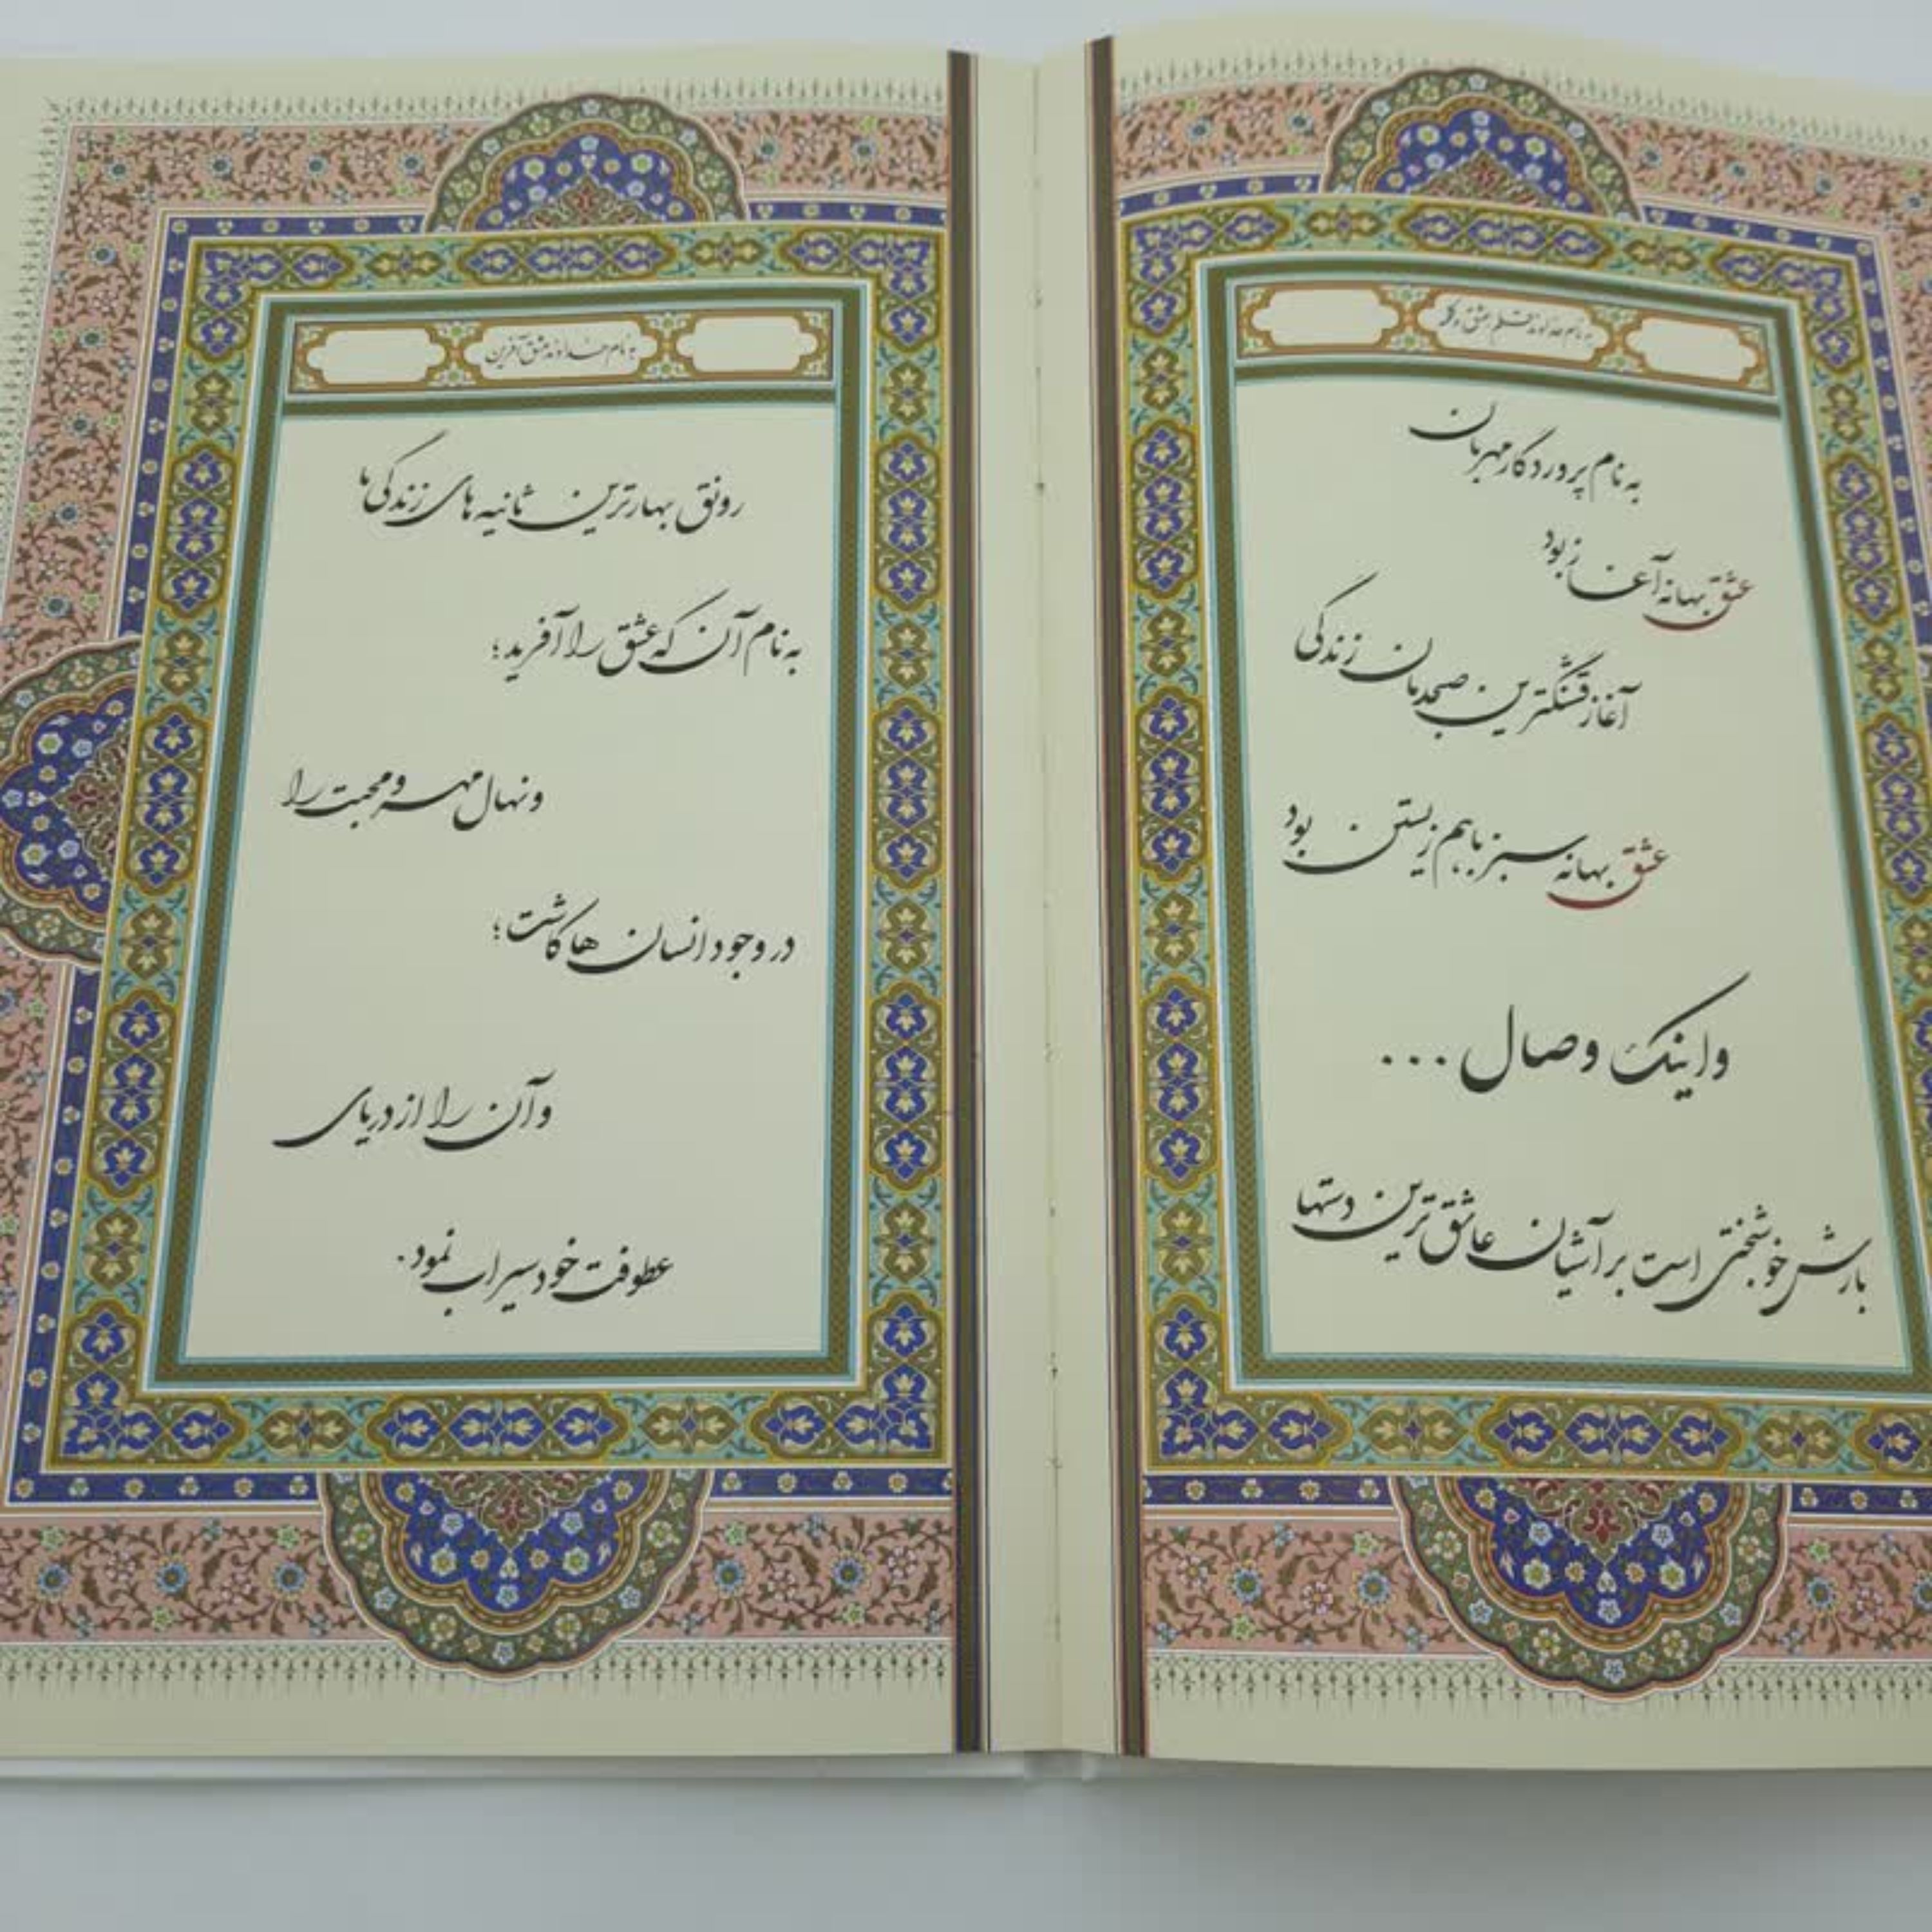 به نام خداوند قلم عشق و
به نام پروردگار مهربان
عشق بهانه آغاز بود
آغاز قشنگترین صبحدمان زندگی
عشق بهانه سبز با هم زیستن بود
و اینک وصال ...
بارش خوشبختی است بر آشیان عاشق ترین دستها
به نام خداوند عشق آفرین
رونق بهارترین ثانیه های زندگی ها
به نام آن که عشق را آفرید؛
و نهال مهر و محبت را
در وجود انسان ها کاشت؛
و آن را از دریای
عطوفت خود سیراب نمود.